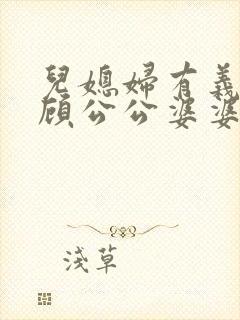 兒媳婦有義
顧公公婆婆
淺草